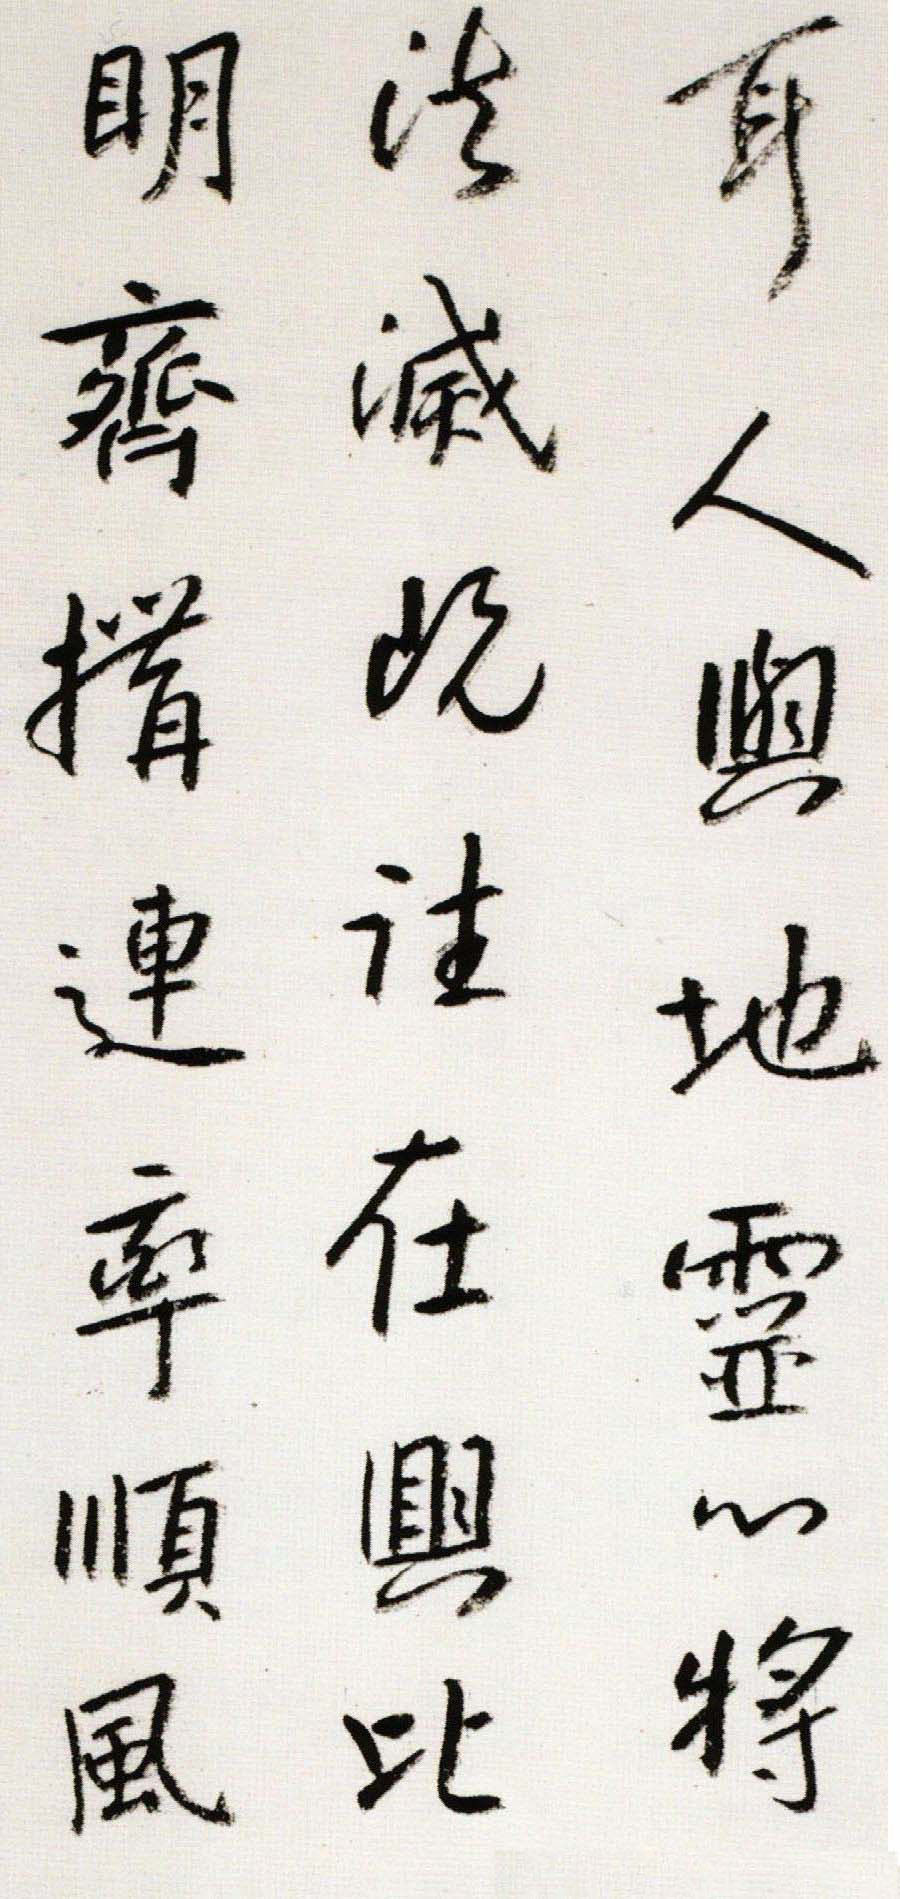 耳人與地靈心將
法滅既往在興比
明齊搢連率順風